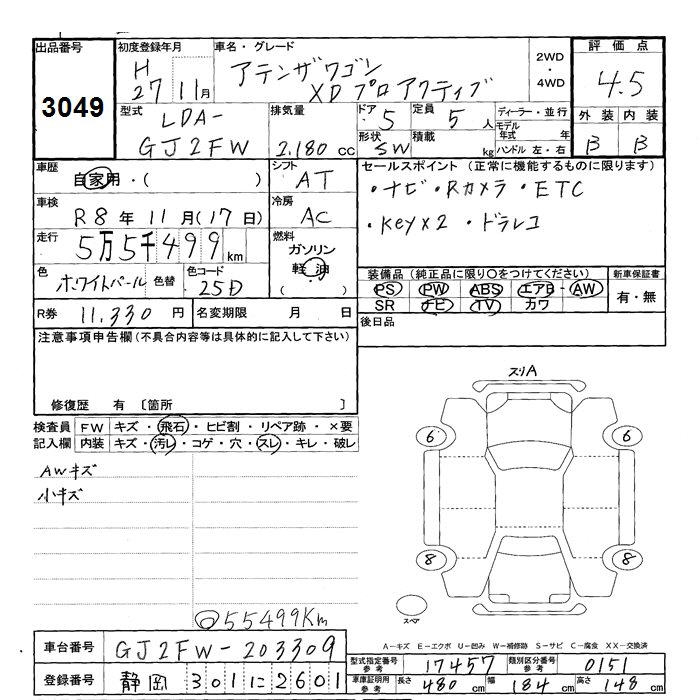 出品番号
3049
初度登録年月
H 27 11月
車名・グレード
アテンザワゴン
XDプロアクティブ
2WD
・
4WD
評価点
4.5
型式
LDA-
GJ2FW
排気量
2.180 cc
ドア 5
定員 5 人
形状 SW
積載 kg
ディーラー・並行
モデル年式 年
ハンドル 左・右
外装 内装
B B
車歴
自家用・( )
シフト
AT
セールスポイント(正常に機能するものに限ります)
・ナビ・Rカメラ・ETC
・Key×2・ドラレコ
車検
R8年11月(17日)
冷房
AC
走行
5万5千499km
燃料
ガソリン
軽油
( )
色
ホワイトパール
色替
色コード
25D
装備品(純正品に限り○をつけてください)
PS PW ABS エアB AW
SR ナビ TV カワ
新車保証書
有・無
R券 11,330 円
名変期限 月 日
後日品
注意事項申告欄(不具合内容等は具体的に記入して下さい)
修復歴 有 〔箇所 〕
検査員記入欄
FW キズ・飛石・ヒビ割・リペア跡・×要
内装 キズ・汚レ・コゲ・穴・スレ・キレ・破レ
AWキズ
小キズ
55499Km
スリA
6 6
8 8
スペア
A-キズ E-エクボ U-凹み W-補修跡 S-サビ C-腐食 XX-交換済
車台番号 GJ2FW-203309
登録番号 静岡 301 に 2601
型式指定番号 参考 17457
類別区分番号 参考 0151
車庫証明用 参考 長さ 480 cm 幅 184 cm 高さ 148 cm